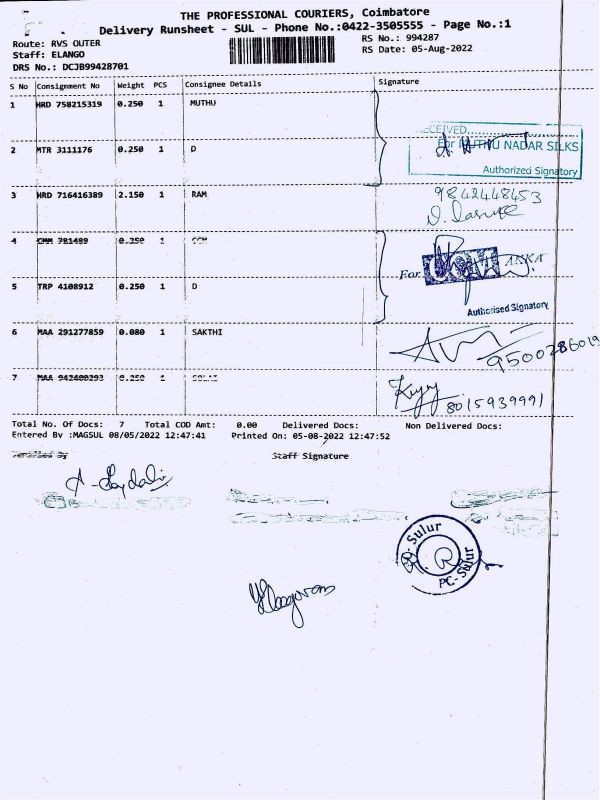 THE PROFESSIONAL COURIERS, Coimbatore
Delivery Runsheet - SUL - Phone No.:0422-3505555 - Page No.:1
Route: RVS OUTER
RS No.: 994287
Staff: ELANGO
RS Date: 05-Aug-2022
DRS No.: DCJB99428701
S No Consignment No Weight PCS Consignee Details Signature
1 HRD 758215319 0.250 1 MUTHU
RECEIVED
For MUTHU NADAR SILKS
2 MTR 3111176 0.250 1 D
Authorized Signatory
3 HRD 716416389 2.150 1 RAM 9842448453
4 CMM 781489 0.250 1 CCM
For
5 TRP 4108912 0.250 1 D
Authorised Signatory
6 MAA 291277859 0.080 1 SAKTHI
9500286019
7 MAA 942600293 0.250 1
8015939991
Total No. Of Docs: 7 Total COD Amt: 0.00 Delivered Docs: Non Delivered Docs:
Entered By :MAGSUL 08/05/2022 12:47:41 Printed On: 05-08-2022 12:47:52
Verified by Staff Signature
Sulur
PC-Sulur